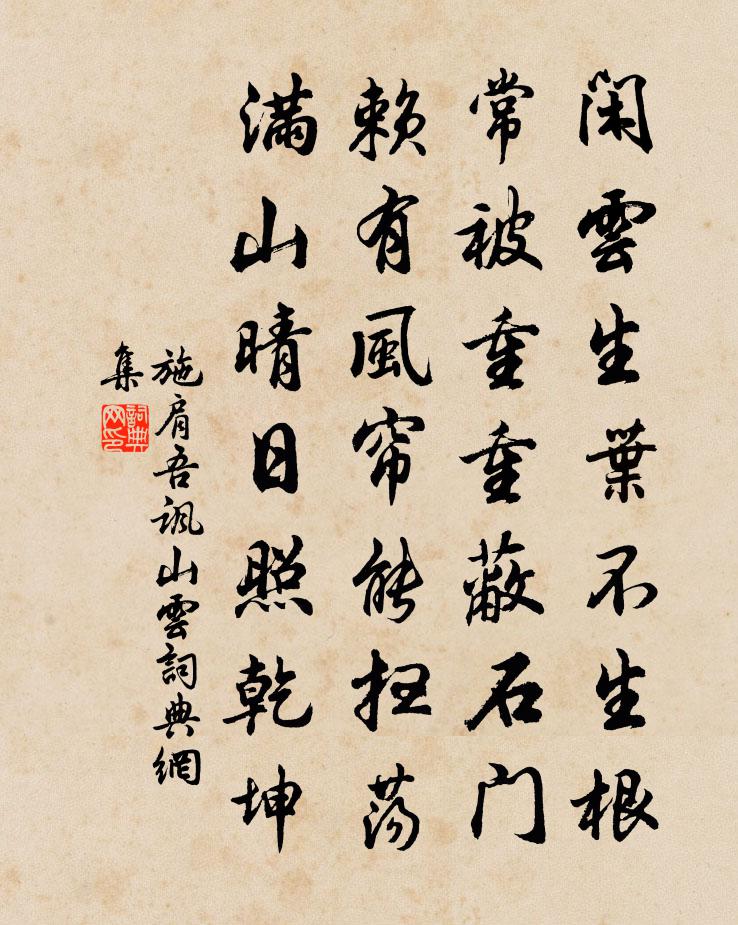 閑雲生葉不生根
常被重重蔽石門
賴有風帘能扫荡
滿山晴日照乾坤
施肩吾諷山雲詞典網
集
詞典
网印